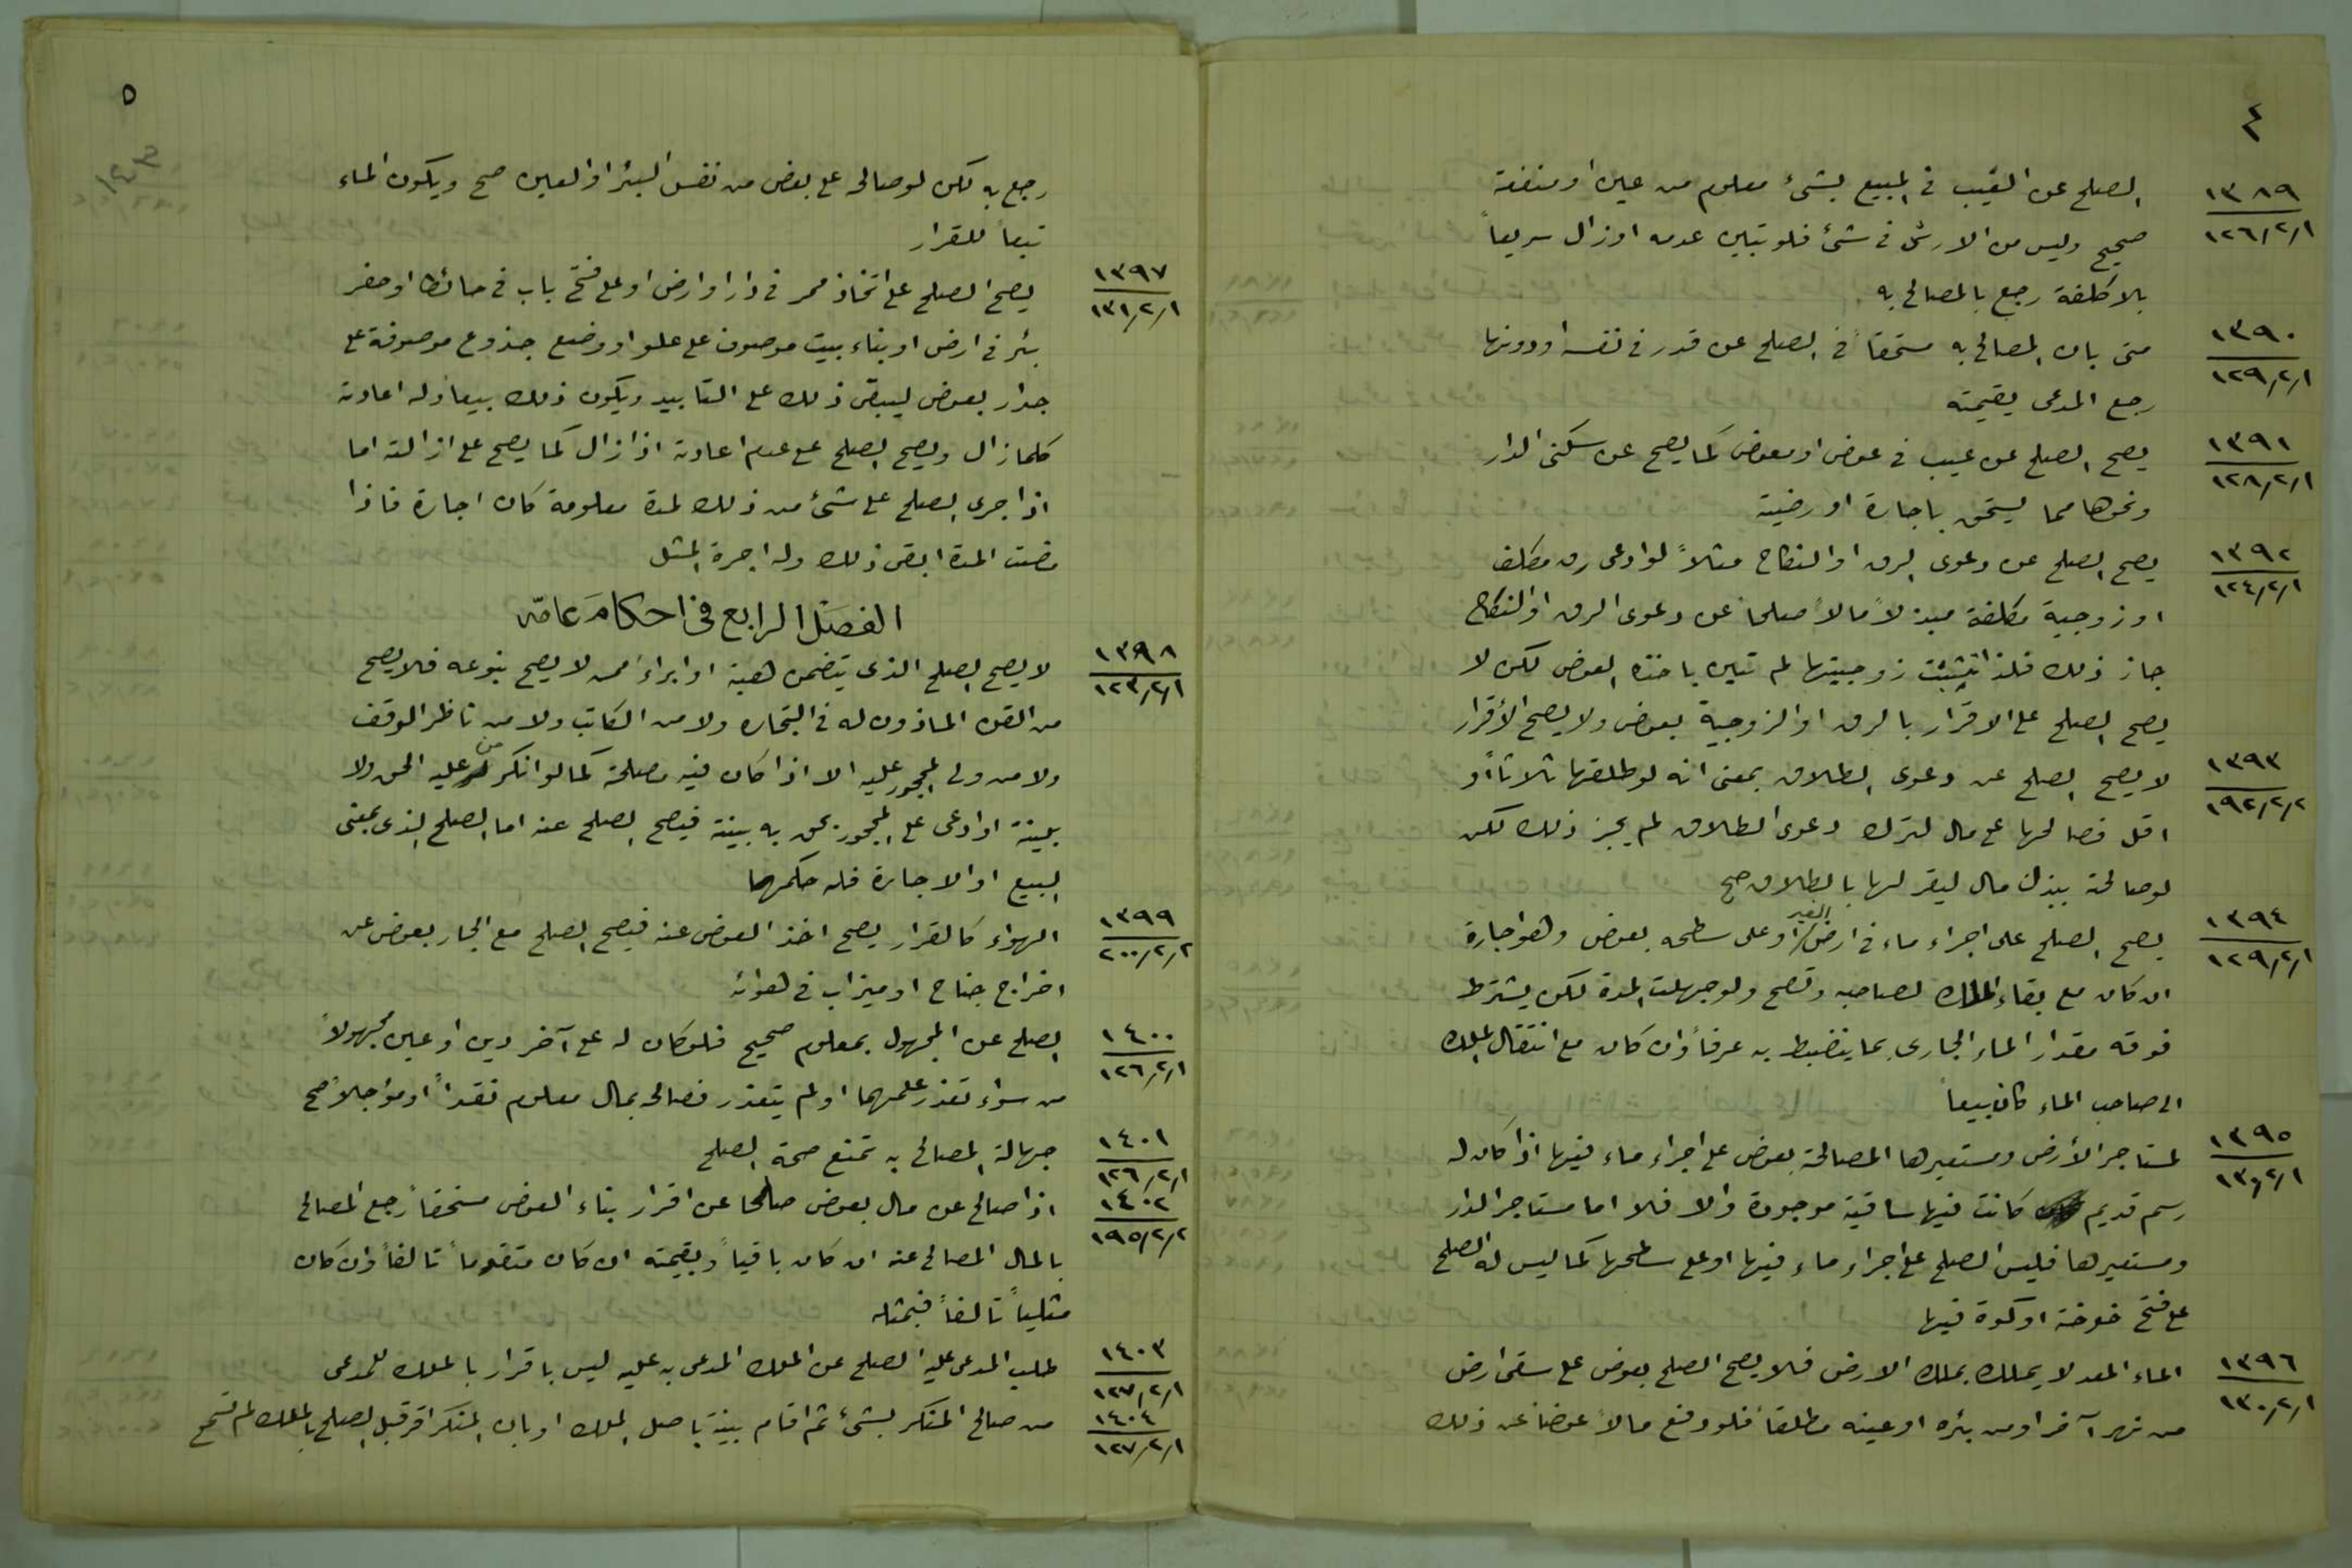 ٤
١٣٨٩
١٢٦/٢/١
الصلح عن العيب في المبيع بشيء معلوم من عين او منفعة
صحيح وليس من الارش في شئ فلو تبين عدمه او زال سريعاً
بلا كلفة رجع بالمصالح به
١٣٩٠
١٢٩/٢/١
متى بان المصالح به مستحقاً في الصلح عن قدر في نفسه او دونها
رجع المدعى بقيمته
١٣٩١
١٢٨/٢/١
يصح الصلح عن عيب في عوض او معوض كما يصح عن سكنى الدار
ونحوها مما يستحق باجارة او وصية
١٣٩٢
١٢٤/٢/١
يصح الصلح عن دعوى الرق او النكاح مثلاً لو ادعى رق مكلف
او زوجية مكلفة فبذلا مالاً صلحاً عن دعوى الرق او النكاح
جاز ذلك فلذا تثبت زوجيتها لم تبن باخذه العوض لكن لا
يصح الصلح على الاقرار بالرق او الزوجية بعوض ولا يصح الأقرار
١٣٩٣
١٩٢/٢/٢
لا يصح الصلح عن دعوى الطلاق بمعنى انه لو طلقها ثلاثاً او
اقل فصالحها على مال لترك دعوى الطلاق لم يجز ذلك لكن
لو صالحته ببذل مال ليقر لها بالطلاق صح
١٣٩٤
١٢٩/٢/١
يصح الصلح على اجراء ماء في ارض الغير او على سطحه بعوض وهو اجارة
ان كان مع بقاء الملك لصاحبه وتصح ولو جهلت المدة لكن يشترط
فوقه مقدار الماء الجارى بما ينضبط به عرفاً وان كان مع انتقال الملك
الى صاحب الماء كان بيعاً
١٣٩٥
١٣٠/٢/١
لمستاجر الأرض ومستعيرها المصالحة بعوض على اجراء ماء فيها اذا كان له
رسم قديم كانت فيها ساقية موجودة والا فلا اما مستاجر الدار
ومستعيرها فليس الصلح على اجراء ماء فيها او على سطحها كما ليس له الصلح
على فتح خوخة او كوة فيها
١٣٩٦
١٣٠/٢/١
الماء المعد لا يملك بملك الارض فلا يصح الصلح بعوض على سقى ارض
من نهر آخر او من بئره او عينه مطلقاً فلو دفع مالاً عوضاً عن ذلك
٥
رجع به لكن لو صالحه على بعض من نفس البئر او العين صح ويكون الماء
تبعاً للقرار
١٣٩٧
١٣١/٢/١
يصح الصلح على اتخاذ ممر في دار او ارض او على فتح باب في حائط او حفر
بئر في ارض او بناء بيت موصوف على علو او وضع جذوع موصوفة على
جدار بعوض ليبقى ذلك على التابيد ويكون ذلك بيعاً وله اعادته
كلما زال ويصح الصلح على عدم اعادته اذا زال كما يصح على ازالته اما
اذا جرى الصلح على شئ من ذلك لمدة معلومة كان اجارة فاذا
مضت المدة ابقى ذلك وله اجرة المثل
الفصل الرابع في احكام عامه
١٣٩٨
١٢٣/٢/١
لا يصح الصلح الذى يتضمن هبة او ابراءً ممن لا يصح تبرعه فلا يصح
من القن الماذون له في التجاره ولا من المكاتب ولا من ناظر الوقف
ولا من ولى المحجور عليه الا اذا كان فيه مصلحة كما لو انكر من عليه الحق ولا
بينة او ادعى على المحجور بحق به بينة فيصح الصلح عنه اما الصلح الذى بمعنى
البيع او الاجارة فله حكمهما
١٣٩٩
٢٠٠/٢/٢
الهواء كالقرار يصح اخذ العوض عنه فيصح الصلح مع الجار بعوض عن
اخراج جناح او ميزاب في هوائه
١٤٠٠
١٢٦/٢/١
الصلح عن المجهول بمعلوم صحيح فلو كان له على آخر دين او عين مجهولاً
من سواء تعذر علمهما او لم يتعذر فصالحه بمال معلوم نقداً او مؤجلاً صح
١٤٠١
١٢٦/٢/١
جهالة المصالح به تمنع صحة الصلح
١٤٠٢
١٩٥/٢/٢
اذا صالح عن مال بعوض صلحا عن اقرار بناء العوض مستحقاً رجع المصالح
بالمال المصالح عنه ان كان باقياً وبقيمته ان كان متقوماً تالفاً وان كان
مثلياً تالفاً فبمثله
١٤٠٣
١٢٧/٢/١
طلب المدعى عليه الصلح عن الملك المدعى به عليه ليس باقرار بالملك للمدعى
١٤٠٤
١٢٧/٢/١
من صالح المنكر بشئ ثم اقام بينة باصل الملك او بان المنكر اقر قبل الصلح بالملك لم تسمع